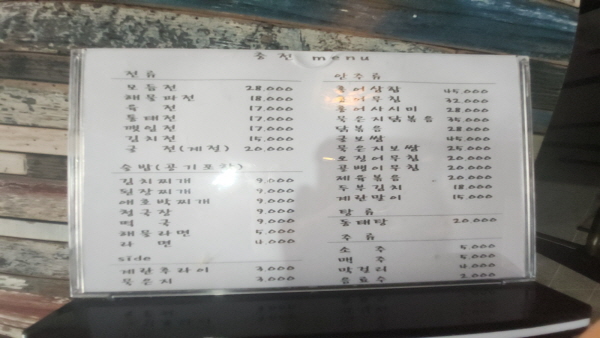 충전 menu
전류
모듬전 28.000
해물파전 18.000
육전 17.000
동태전 17.000
깻잎전 17.000
김치전 15.000
굴전(계절) 20.000
술밥(공기포함)
김치찌개 9.000
된장찌개 9.000
애호박찌개 9.000
청국장 9.000
떡국 9.000
해물라면 5.000
라면 4.000
side
계란후라이 3.000
묵은지 3.000
안주류
홍어삼합 45.000
홍어무침 32.000
홍어사시미 28.000
묵은지닭볶음 35.000
닭볶음 28.000
굴보쌈 45.000
묵은지보쌈 25.000
오징어무침 20.000
골뱅이무침 20.000
제육볶음 20.000
두부김치 18.000
계란말이 15.000
탕류
동태탕 20.000
주류
소주 5.000
맥주 5.000
막걸리 4.000
음료수 2.000